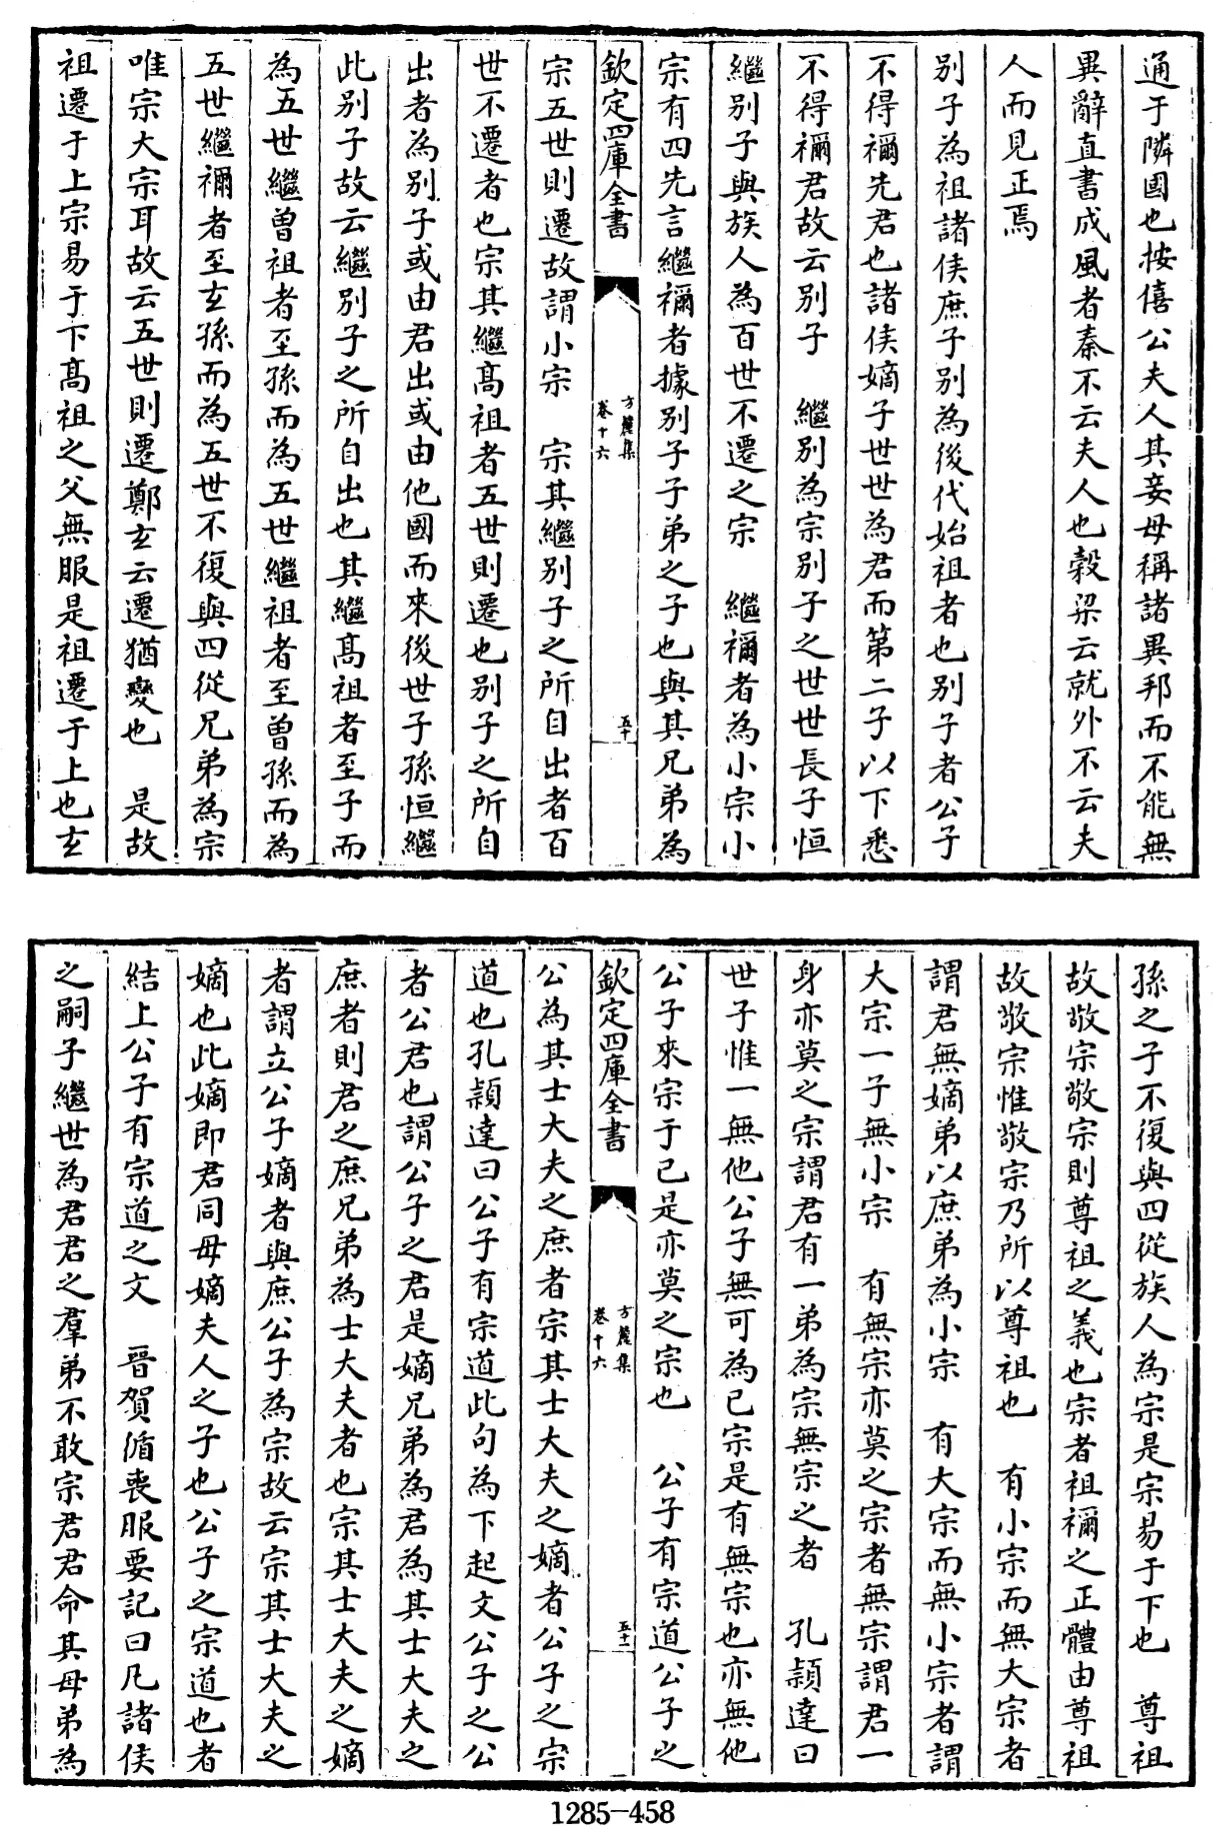 通于隣國也按僖公夫人其妾母稱諸異邦而不能無
異辭直書成風者秦不云夫人也榖梁云就外不云夫
人而見正焉
別子為祖諸侯庶子別為後代始祖者也別子者公子
不得禰先君也諸侯嫡子世世為君而第二子以下悉
不得禰君故云別子　繼別為宗別子之世世長子恒
繼別子與族人為百世不遷之宗　繼禰者為小宗小
宗有四先言繼禰者據別子子弟之子也與其兄弟為
欽定四庫全書
方麓集
卷十六
五十
宗五世則遷故謂小宗　宗其繼別子之所自出者百
世不遷者也宗其繼髙祖者五世則遷也別子之所自
出者為別子或由君出或由他國而來後世子孫恒繼
此別子故云繼別子之所自出也其繼髙祖者至子而
為五世繼曽祖者至孫而為五世繼祖者至曽孫而為
五世繼禰者至玄孫而為五世不復與四從兄弟為宗
唯宗大宗耳故云五世則遷鄭玄云遷猶變也　是故
祖遷于上宗易于下髙祖之父無服是祖遷于上也玄
孫之子不復與四從族人為宗是宗易于下也　尊祖
故敬宗敬宗則尊祖之義也宗者祖禰之正體由尊祖
故敬宗惟敬宗乃所以尊祖也　有小宗而無大宗者
謂君無嫡弟以庶弟為小宗　有大宗而無小宗者謂
大宗一子無小宗　有無宗亦莫之宗者無宗謂君一
身亦莫之宗謂君有一弟為宗無宗之者　孔頴達曰
世子惟一無他公子無可為已宗是有無宗也亦無他
公子來宗于已是亦莫之宗也　公子有宗道公子之
欽定四庫全書
方麓集
卷十六
五十一
公為其士大夫之庶者宗其士大夫之嫡者公子之宗
道也孔頴達曰公子有宗道此句為下起文公子之公
者公君也謂公子之君是嫡兄弟為君為其士大夫之
庶者則君之庶兄弟為士大夫者也宗其士大夫之嫡
者謂立公子嫡者與庶公子為宗故云宗其士大夫之
嫡也此嫡即君同母嫡夫人之子也公子之宗道也者
結上公子有宗道之文　晉賀循喪服要記曰凡諸侯
之嗣子繼世為君君之羣弟不敢宗君君命其母弟為
1285-458